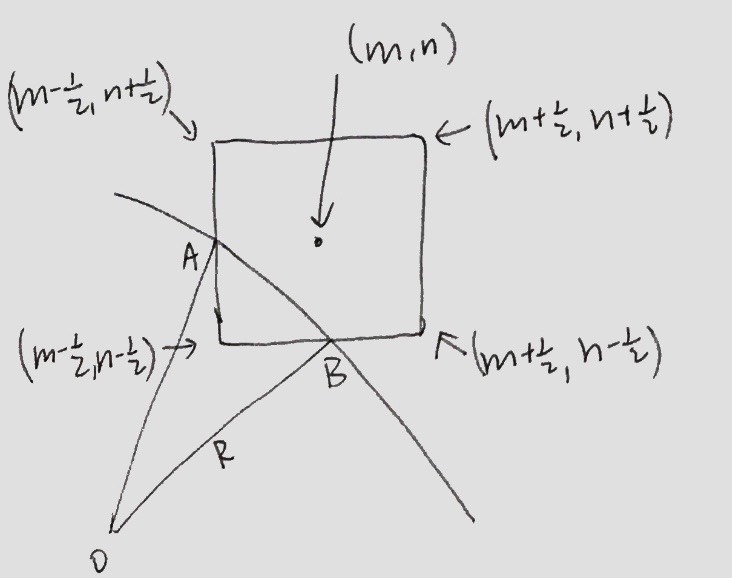 (m,n)
(m-1/2, n+1/2)
(m+1/2, n+1/2)
A
(m-1/2, n-1/2)
B
(m+1/2, n-1/2)
R
O